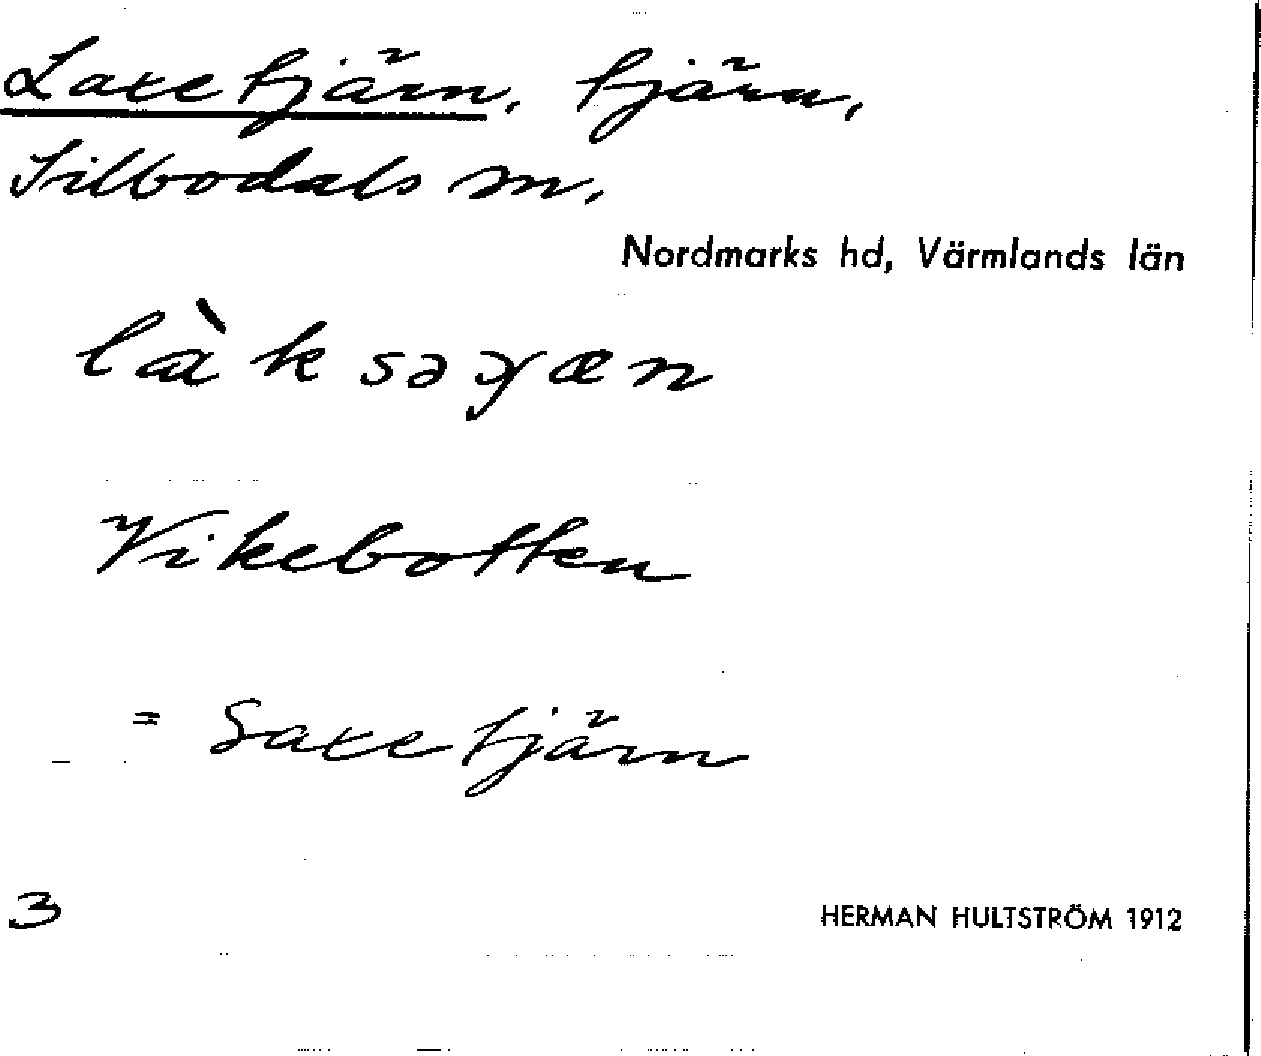 Laxetjärn, tjärn,
Silbodals sn,
Nordmarks hd, Värmlands län
Vikebotten
= Saxetjärn
3
HERMAN HULTSTRÖM 1912